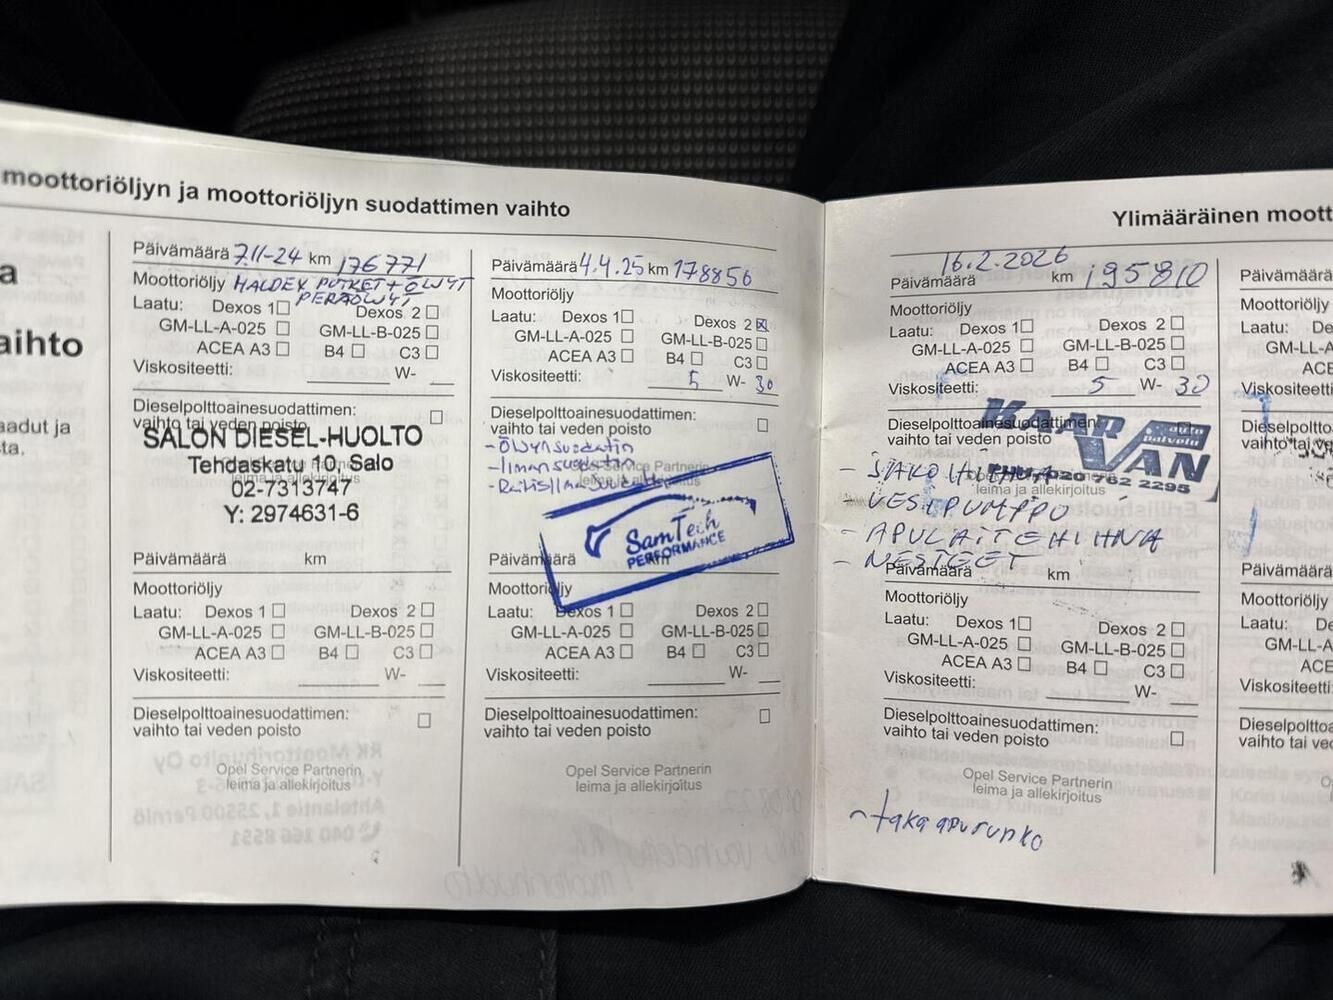 moottoriöljyn ja moottoriöljyn suodattimen vaihto
a
aihto
aadut ja
sta.
Päivämäärä 7.11-24 km 176771
Moottoriöljy HALDEX PUTKET + ÖLJYT
PERÄÖLJYT
Laatu: Dexos 1 ☐ Dexos 2 ☐
GM-LL-A-025 ☐ GM-LL-B-025 ☐
ACEA A3 ☐ B4 ☐ C3 ☐
Viskositeetti: W-
Dieselpolttoainesuodattimen: ☐
vaihto tai veden poisto
SALON DIESEL-HUOLTO
Tehdaskatu 10, Salo
02-7313747
Y: 2974631-6
Päivämäärä km
Moottoriöljy
Laatu: Dexos 1 ☐ Dexos 2 ☐
GM-LL-A-025 ☐ GM-LL-B-025 ☐
ACEA A3 ☐ B4 ☐ C3 ☐
Viskositeetti: W-
Dieselpolttoainesuodattimen: ☐
vaihto tai veden poisto
Opel Service Partnerin
leima ja allekirjoitus
Päivämäärä 4.4.25 km 178856
Moottoriöljy
Laatu: Dexos 1 ☐ Dexos 2 ☒
GM-LL-A-025 ☐ GM-LL-B-025 ☐
ACEA A3 ☐ B4 ☐ C3 ☐
Viskositeetti: 5 W- 30
Dieselpolttoainesuodattimen:
vaihto tai veden poisto ☐
- Öljynsuodatin
- Ilmansuodatin
Opel Service Partnerin
leima ja allekirjoitus
SamTech
PERFORMANCE
Päivämäärä km
Moottoriöljy
Laatu: Dexos 1 ☐ Dexos 2 ☐
GM-LL-A-025 ☐ GM-LL-B-025 ☐
ACEA A3 ☐ B4 ☐ C3 ☐
Viskositeetti: W-
Dieselpolttoainesuodattimen: ☐
vaihto tai veden poisto
Opel Service Partnerin
leima ja allekirjoitus
Ylimääräinen moott
16.2.2026
Päivämäärä km 195810
Moottoriöljy
Laatu: Dexos 1 ☐ Dexos 2 ☐
GM-LL-A-025 ☐ GM-LL-B-025 ☐
ACEA A3 ☐ B4 ☐ C3 ☐
Viskositeetti: 5 W- 30
Dieselpolttoainesuodattimen:
vaihto tai veden poisto
KAAR VAN
auto palvelu
PUH. 020 762 2295
leima ja allekirjoitus
- JAKOHIHNA
- VESIPUMPPU
- APULAITEHIHNA
- NESTEET
Päivämäärä km
Moottoriöljy
Laatu: Dexos 1 ☐ Dexos 2 ☐
GM-LL-A-025 ☐ GM-LL-B-025 ☐
ACEA A3 ☐ B4 ☐ C3 ☐
Viskositeetti: W-
Dieselpolttoainesuodattimen:
vaihto tai veden poisto ☐
Opel Service Partnerin
leima ja allekirjoitus
- taka apurunko
Päivämäärä
Moottoriöljy
Laatu: De
GM-LL-A
ACE
Viskositeetti
Dieselpolto
vaihto tai ve
Päivämäärä
Moottoriöljy
Laatu: De
GM-LL-A
ACE
Viskositeetti:
Dieselpoltto
vaihto tai ved